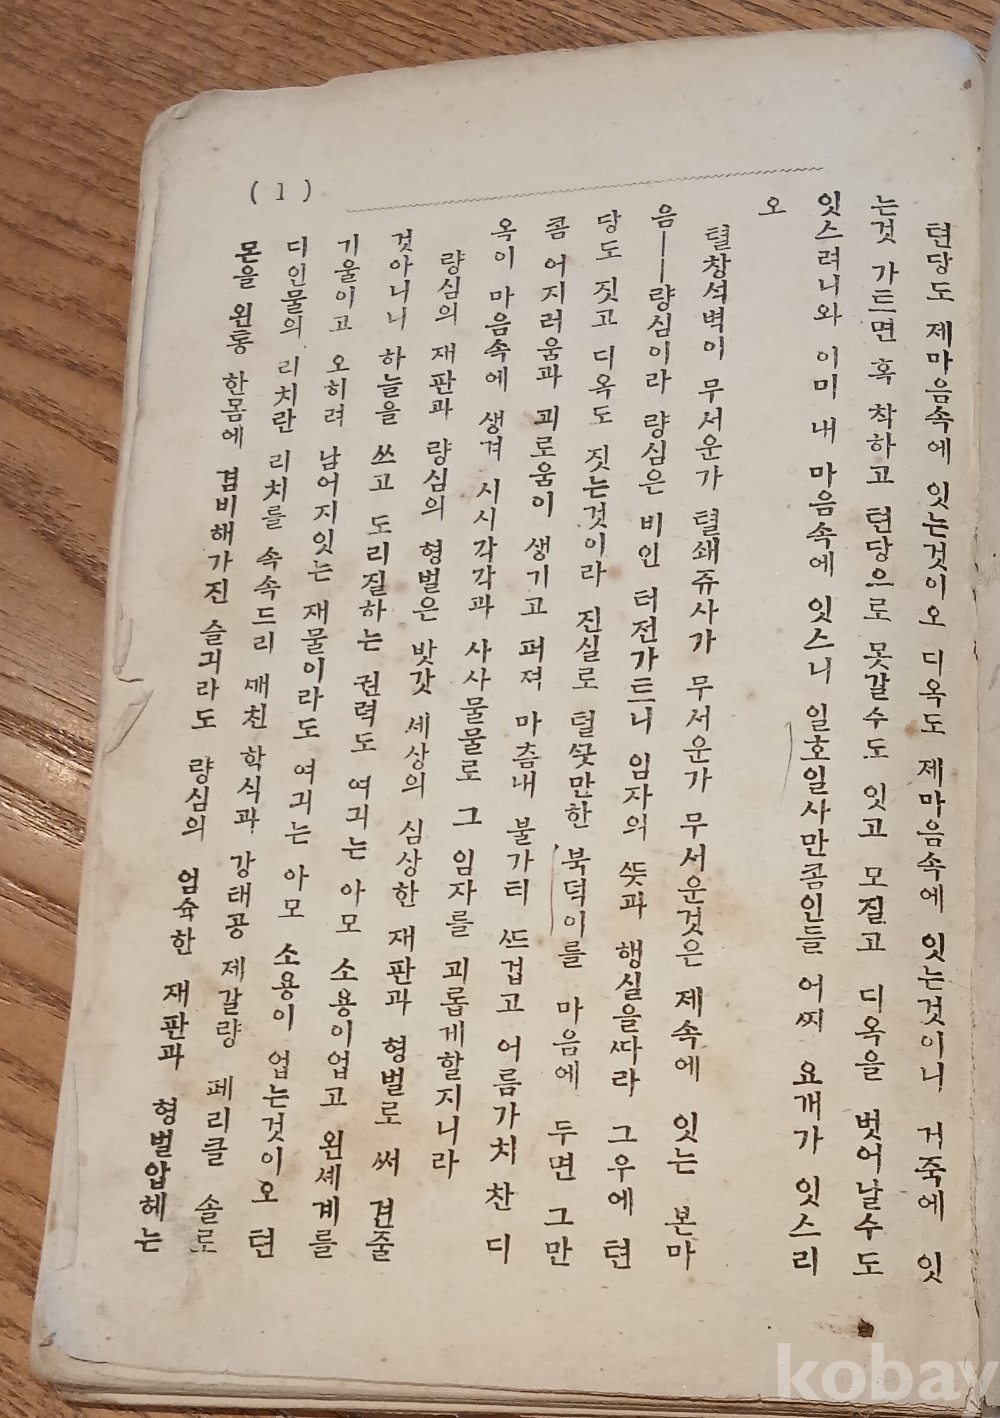 (1)
텬당도 제마음속에 잇는것이오 디옥도 제마음속에 잇는것이니 거죽에 잇
는것 가트면 혹 착하고 텬당으로 못갈수도 잇고 모질고 디옥을 벗어날수도
잇스려니와 이미 내 마음속에 잇스니 일호일사만콤인들 어찌 요개가 잇스리
오
텰창석벽이 무서운가 텰쇄쥬사가 무서운가 무서운것은 제속에 잇는 본마
음——량심이라 량심은 비인 터전가트니 임자의 ᄯᅳᆺ과 행실을ᄯᅡ라 그우에 텬
당도 짓고 디옥도 짓는것이라 진실로 털ᄭᅳᆺ만한 북덕이를 마음에 두면 그만
콤 어지러움과 괴로움이 생기고 퍼져 마츰내 불가티 ᄯᅳ겁고 어름가치 찬 디
옥이 마음속에 생겨 시시각각과 사사물물로 그 임자를 괴롭게할지니라
량심의 재판과 량심의 형벌은 밧갓 세상의 심상한 재판과 형벌로 써 견줄
것아니니 하늘을 쓰고 도리질하는 권력도 여긔는 아모 소용이업고 왼세계를
기울이고 오히려 남어지잇는 재물이라도 여긔는 아모 소용이 업는것이오 텬
디인물의 리치란 리치를 속속드리 ᄭᅢ친 학식과 강태공 제갈량 페리클 솔로
몬을 왼통 한몸에 겸비해가진 슬긔라도 량심의 엄슉한 재판과 형벌압헤는
kobay